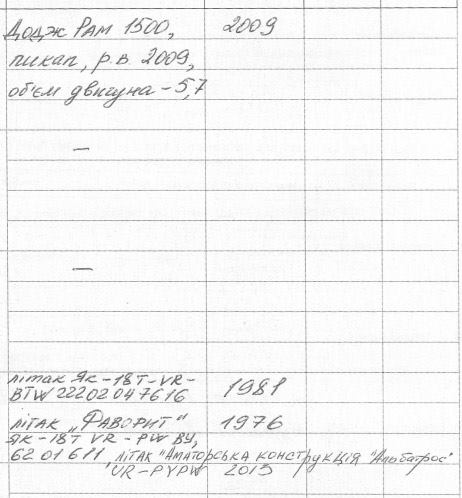 Додж Рам 1500, 2009
пикап, р.в. 2009,
об'єм двигуна – 5,7
—
—
літак Як-18Т-VR-
BTW 22202047616 1981
літак „Фаворит" 1976
ЯК-18Т VR-PWBY,
6201611, літак "Аматорська конструкція "Альбатрос"
UR-PYPW 2015